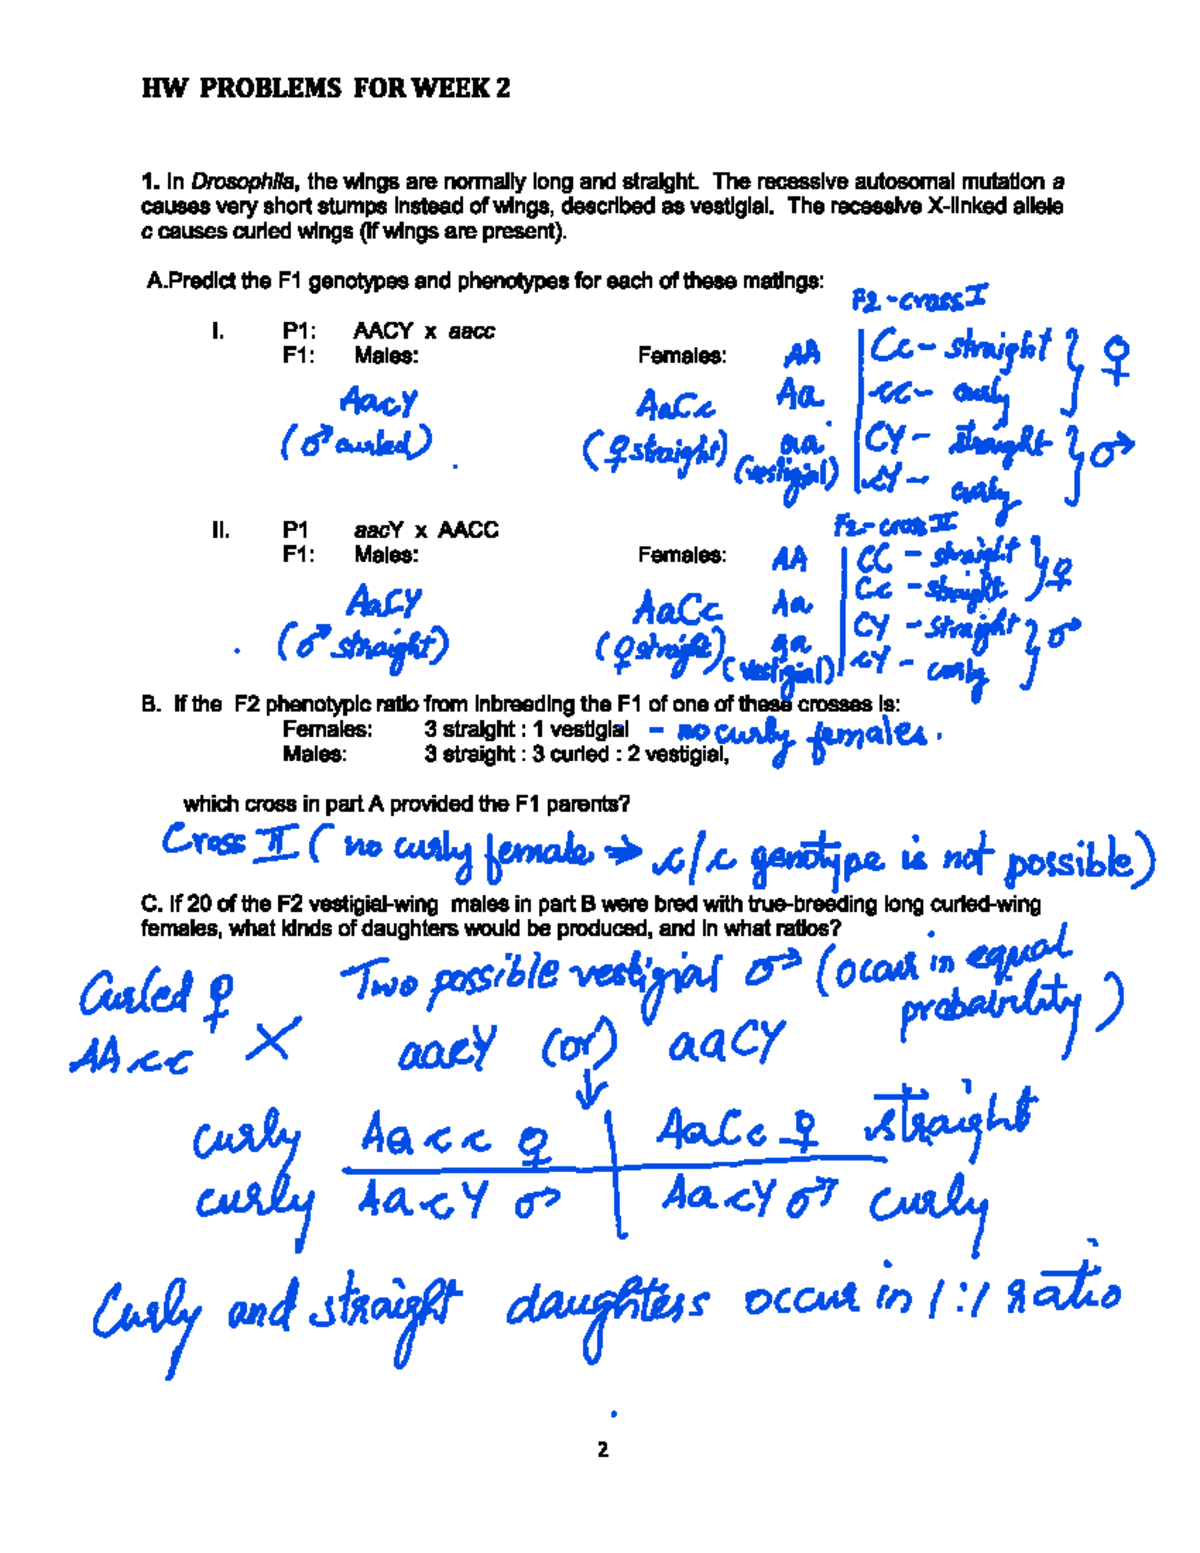 HW PROBLEMS FOR WEEK 2
1. In Drosophila, the wings are normally long and straight. The recessive autosomal mutation a
causes very short stumps instead of wings, described as vestigial. The recessive X-linked allele
c causes curled wings (if wings are present).
A.Predict the F1 genotypes and phenotypes for each of these matings:
F2-cross I
I. P1: AACY x aacc
F1: Males: Females:
AacY
(♂ curled)
AaCc
(♀ straight)
AA
Aa
aa
(vestigial)
Cc - straight } ♀
cc - curly
CY - straight } ♂
cY - curly
II. P1 aacY x AACC
F1: Males: Females:
AaCY
(♂ straight)
AaCc
(♀ straight)
F2-cross II
AA
Aa
aa
(vestigial)
CC - straight } ♀
Cc - straight
CY - straight } ♂
cY - curly
B. If the F2 phenotypic ratio from inbreeding the F1 of one of these crosses is:
Females: 3 straight : 1 vestigial - no curly females.
Males: 3 straight : 3 curled : 2 vestigial,
which cross in part A provided the F1 parents?
Cross II ( no curly female → c/c genotype is not possible)
C. If 20 of the F2 vestigial-wing males in part B were bred with true-breeding long curled-wing
females, what kinds of daughters would be produced, and in what ratios?
Curled ♀ Two possible vestigial ♂ (occur in equal
probability)
AAcc X aacY (or) aaCY
↓
curly Aacc ♀ | AaCc ♀ straight
curly AacY ♂ | AacY ♂ curly
Curly and straight daughters occur in 1:1 ratio
2